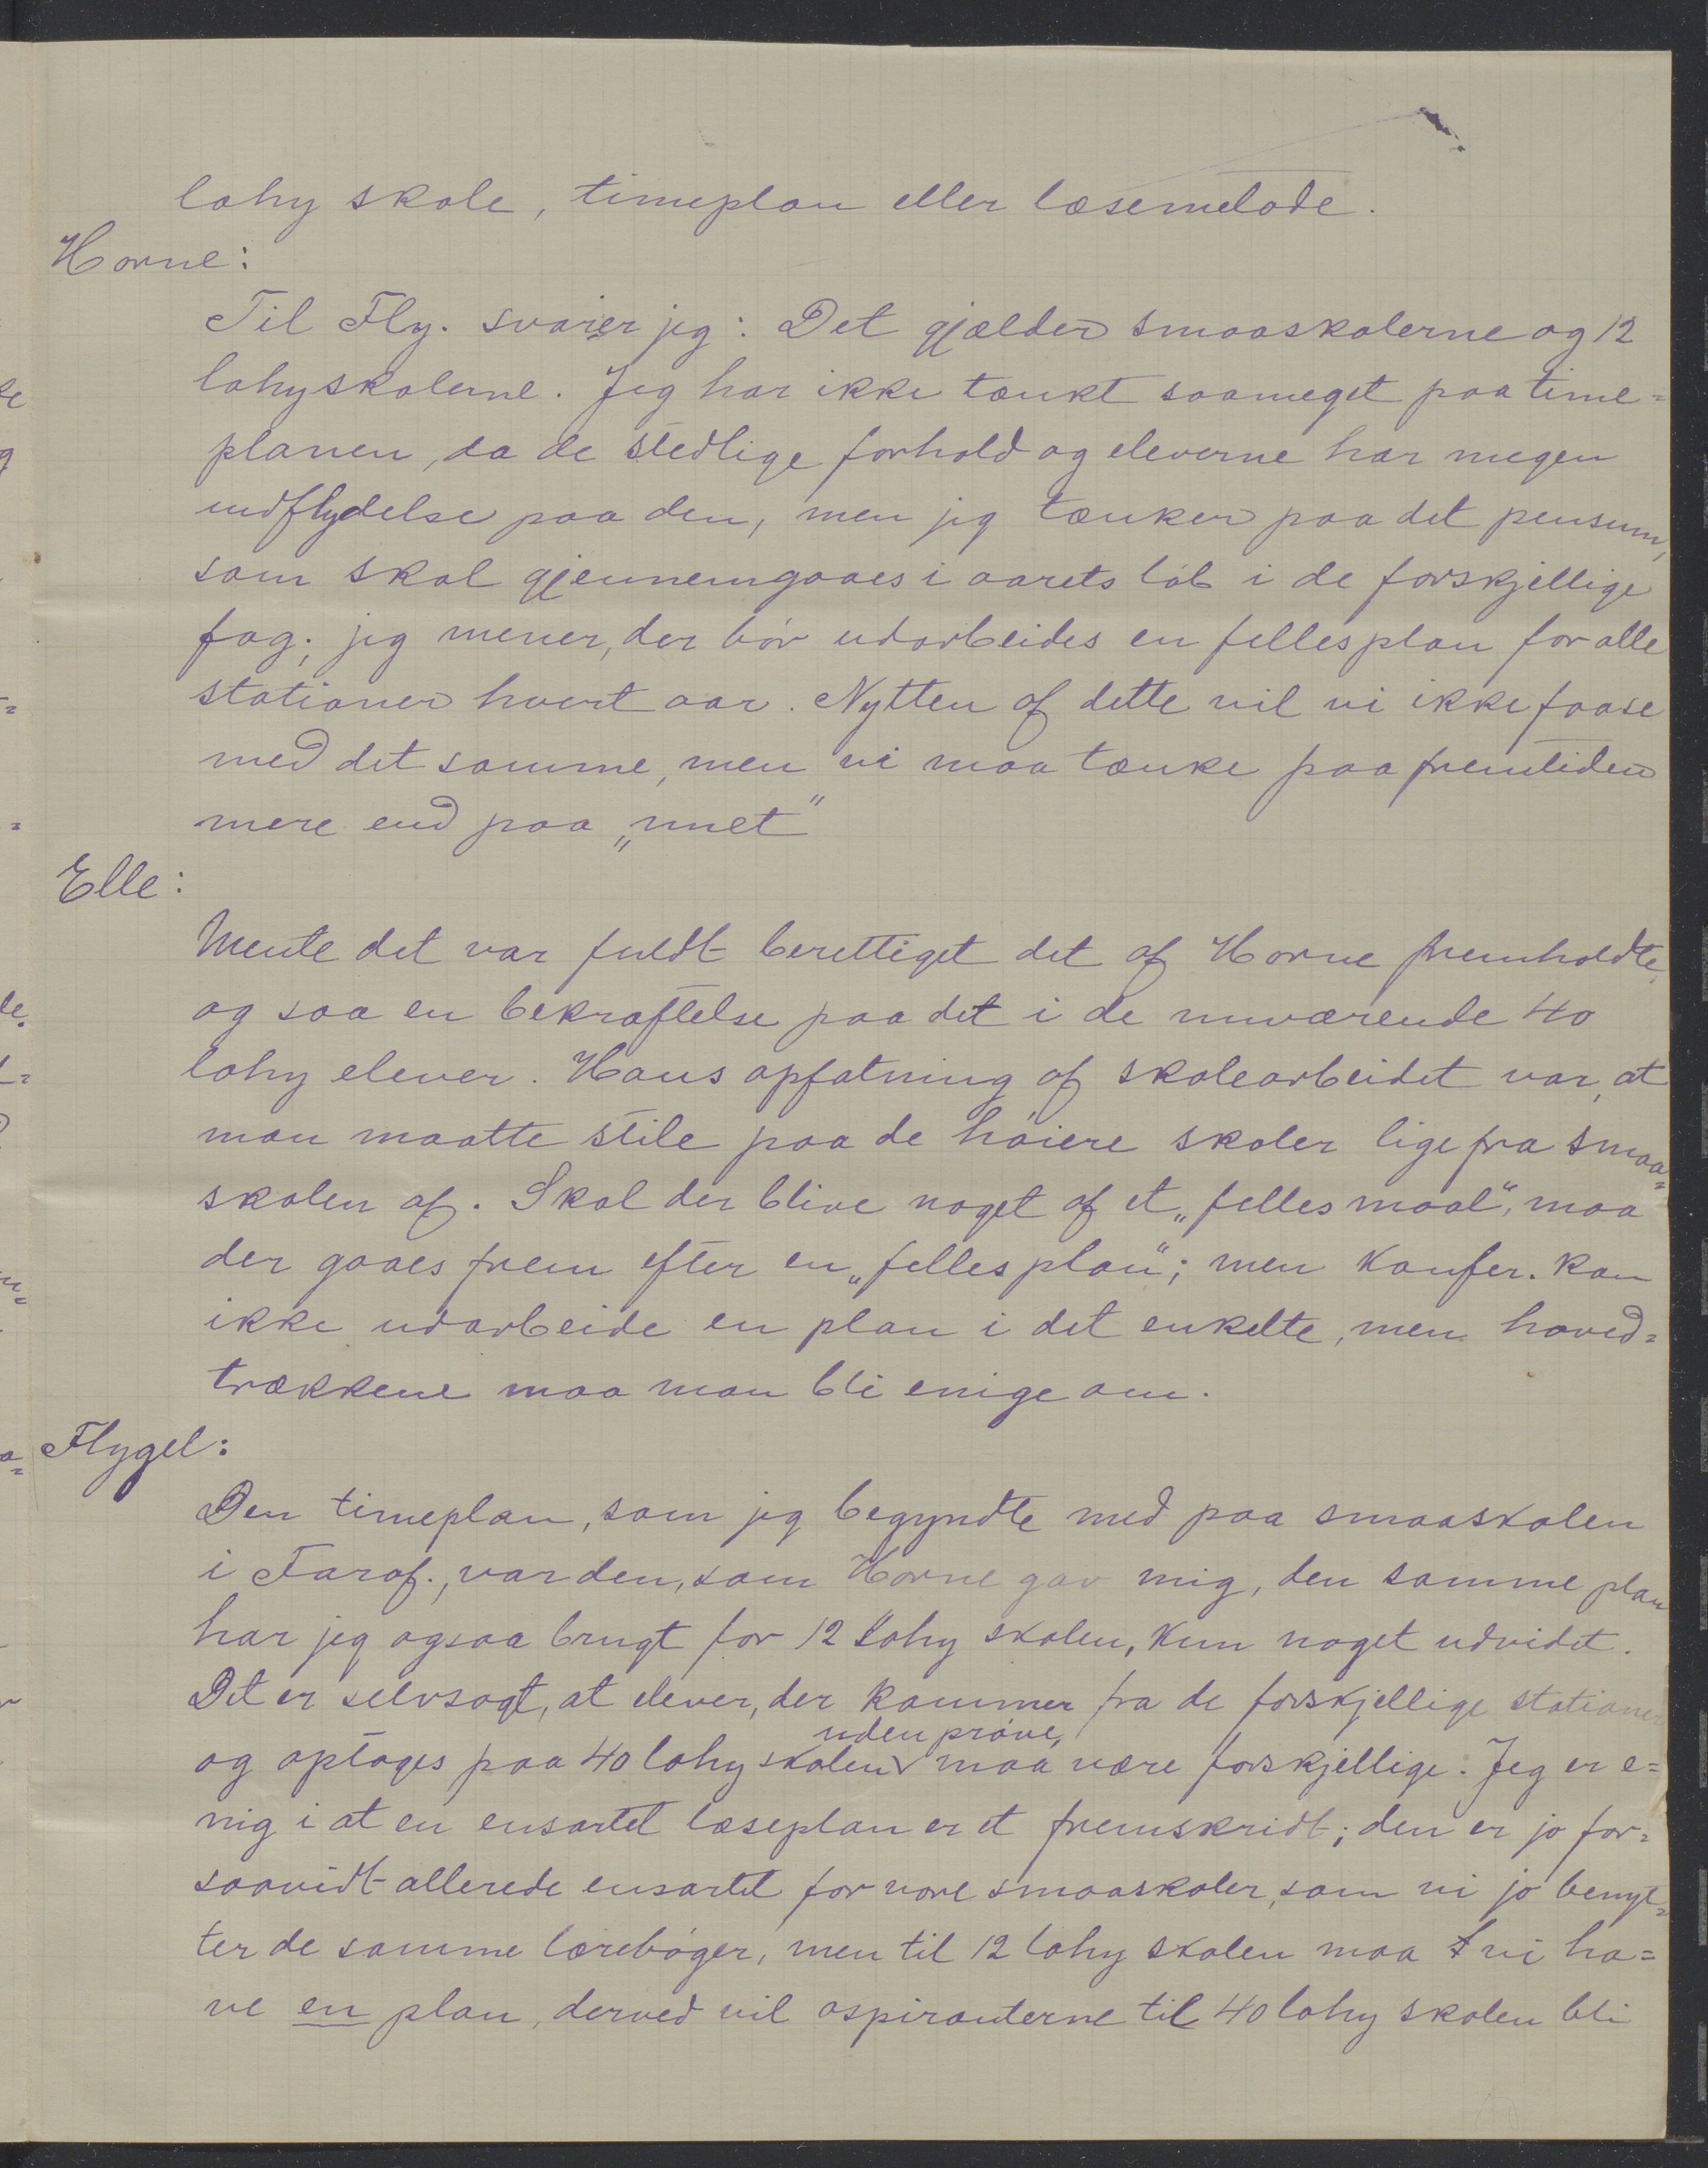 lahy skole, timeplan eller læsemetode.
Horne:
Til Fly. svarer jeg: Det gjælder smaaskolerne og 12
lahyskolerne. Jeg har ikke tænkt saameget paa time=
planen, da de stedlige forhold og eleverne har megen
indflydelse paa den, men jeg tænker paa det pensum,
som skal gjennemgaaes i aarets løb i de forskjellige
fag; jeg mener, der bør udarbeides en fellesplan for alle
stationer hvert aar. Nytten af dette vil vi ikke faa se
med det samme, men vi maa tænke paa fremtiden
mere end paa „nuet“
Elle:
Mente det var fuldt berettiget det af Horne fremholdte,
og saa en bekræftelse paa det i de nuværende 40
lahy elever. Hans opfatning af skolearbeidet var, at
man maatte stile paa de høiere skoler lige fra smaa=
skolen af. Skal der blive noget af et „felles maal“, maa
der gaaes frem efter en „felles plan“; men Konfer. kan
ikke udarbeide en plan i det enkelte, men hoved=
trækkene maa man bli enige om.
Flygel:
Den timeplan, som jeg begyndte med paa smaaskolen
i Faraf., var den, som Horne gav mig, den samme plan
har jeg ogsaa brugt for 12 lahy skolen, kun noget udvidet.
Det er selvsagt, at elever, der kommer fra de forskjellige stationer
uden prøve,
og optages paa 40 lahy skolen maa være forskjellige. Jeg er e=
nig i at en ensartet læseplan er et fremskridt; den er jo for=
saavidt allerede ensartet for vore smaaskoler, som vi jo benyt=
ter de samme lærebøger, men til 12 lahy skolen maa vi ha=
ve en plan, derved vil aspiranterne til 40 lahy skolen bli